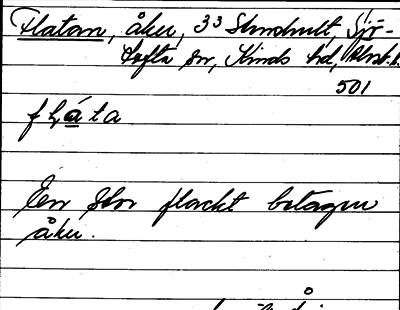 Flatan, åker, 3³ Strudhult, Sjö-
tofta sn, Kinds hd,
501
flata
En stor flackt belägen
åker.